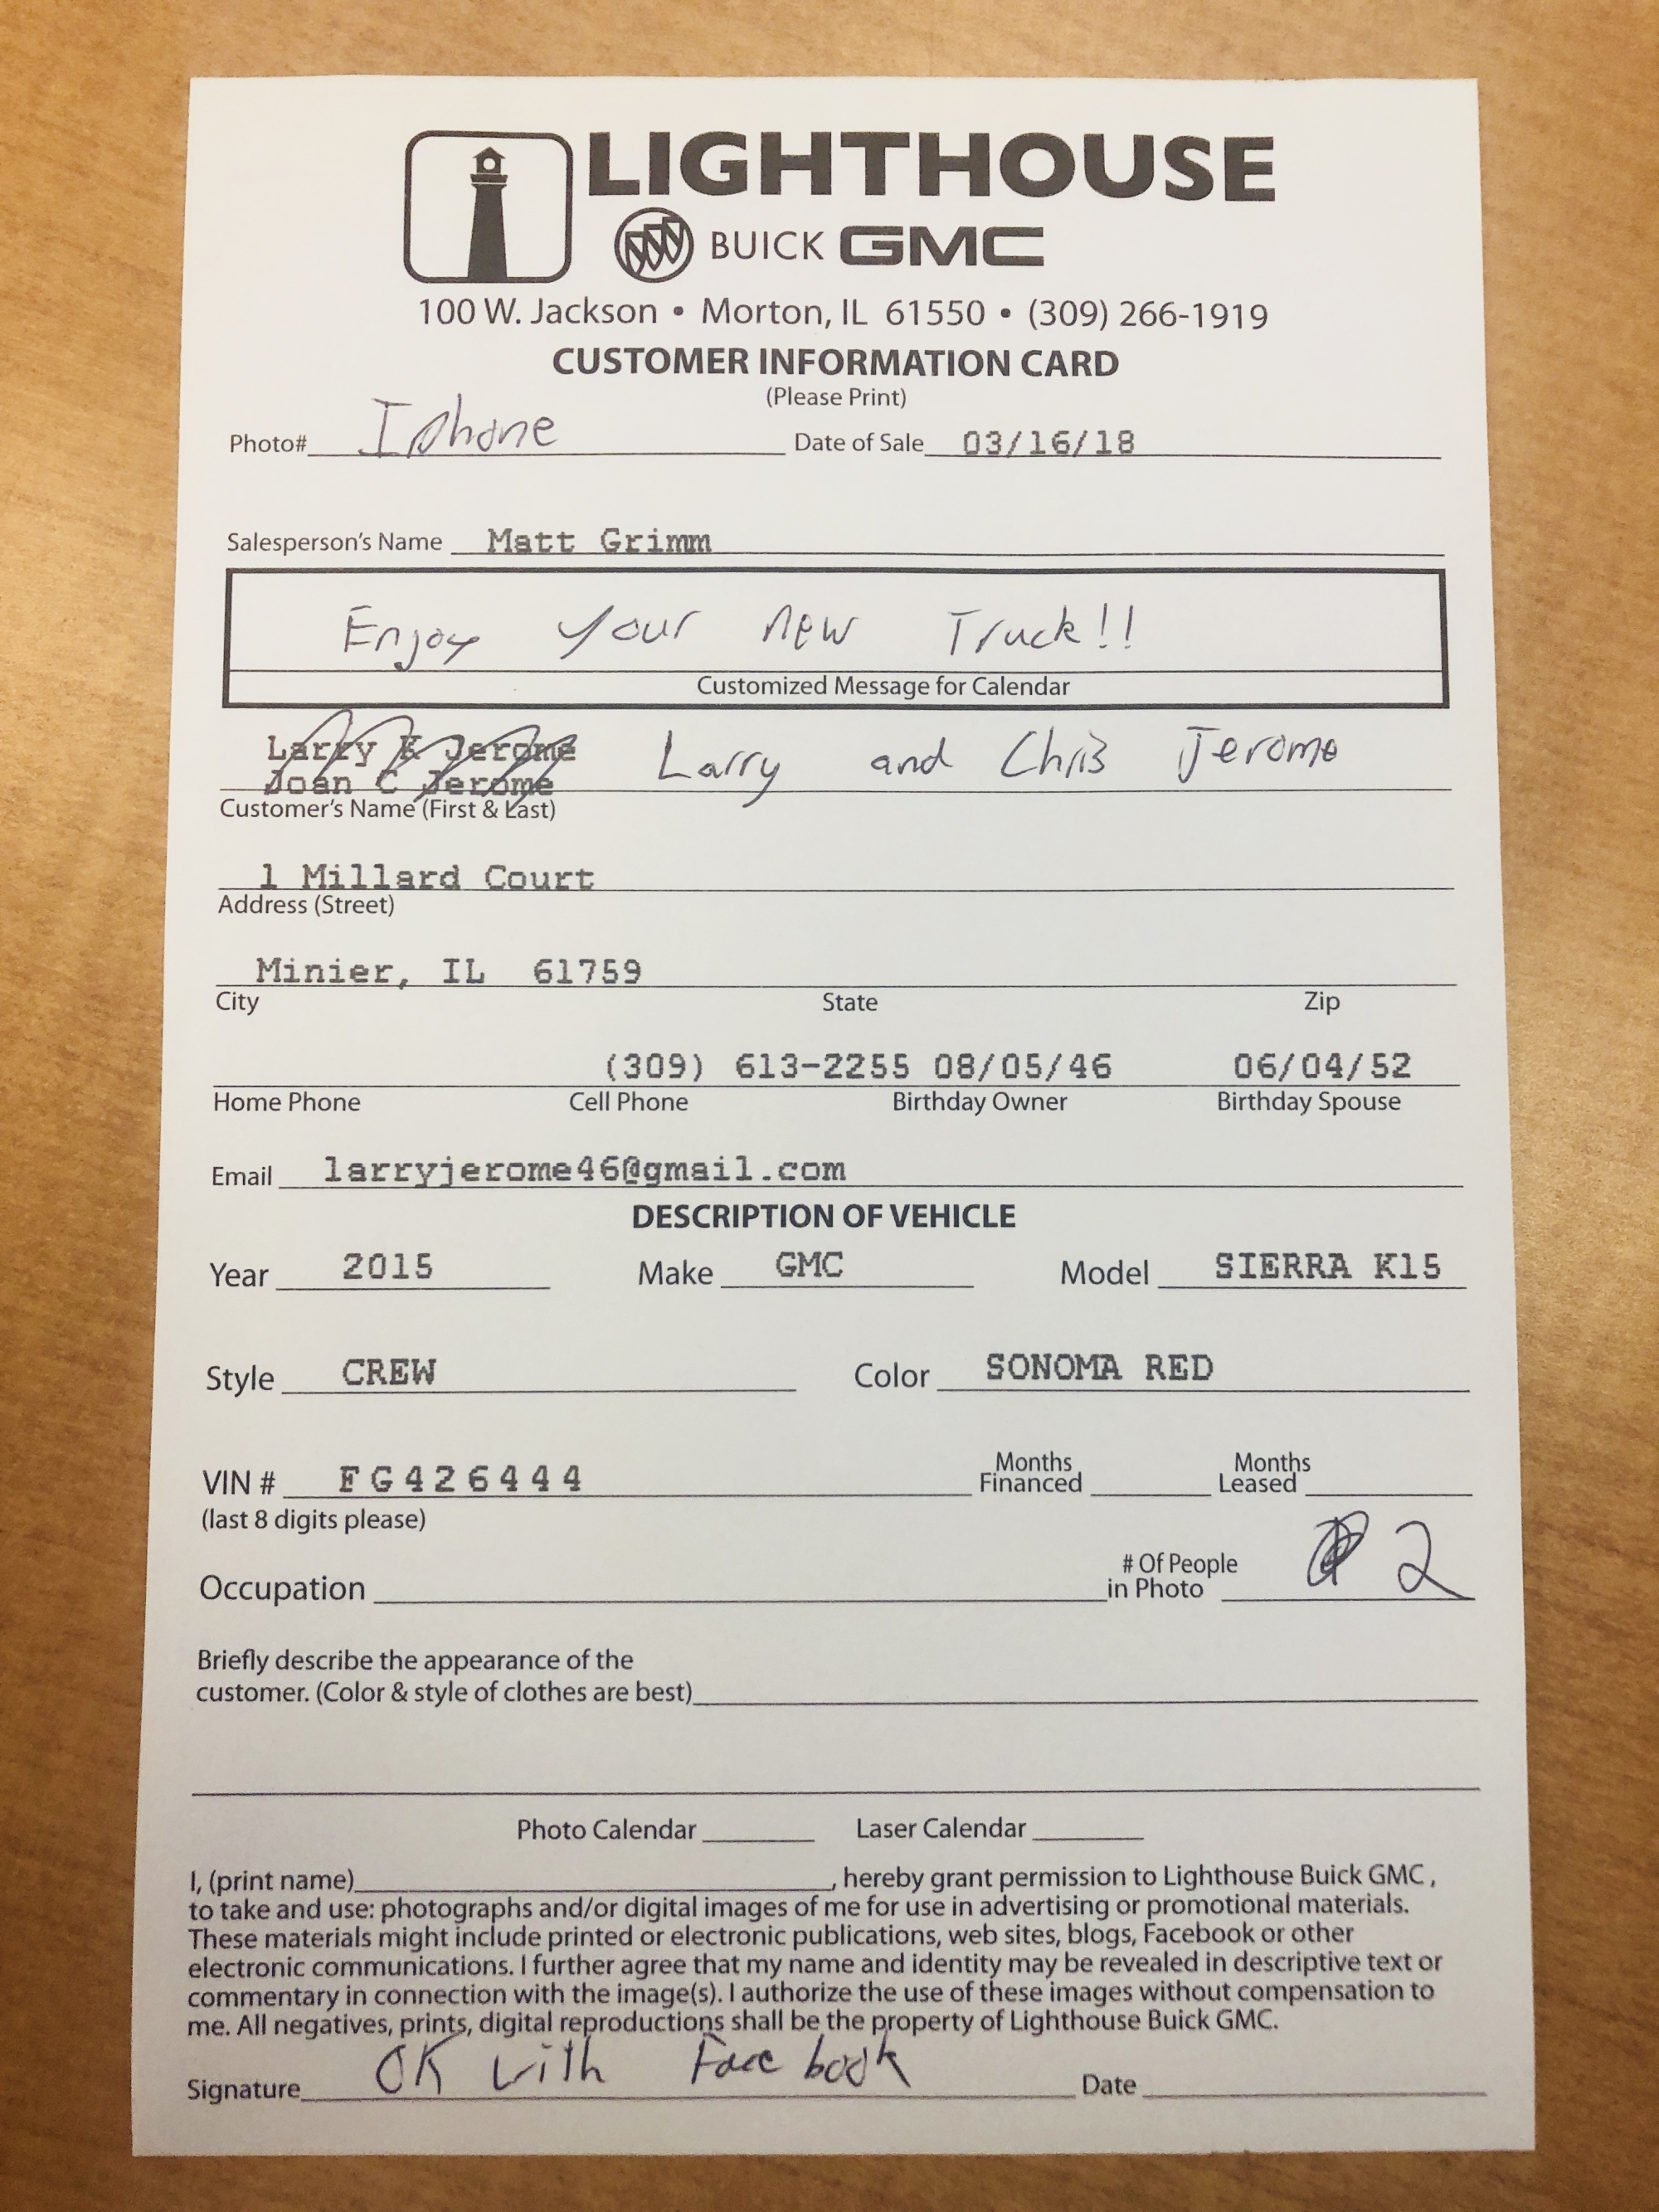 LIGHTHOUSE
BUICK GMC
100 W. Jackson • Morton, IL 61550 • (309) 266-1919
CUSTOMER INFORMATION CARD
(Please Print)
Photo# Iphone Date of Sale 03/16/18
Salesperson's Name Matt Grimm
Enjoy your new Truck!!
Customized Message for Calendar
Larry K Jerome Larry and Chris Jerome
Joan C Jerome
Customer's Name (First & Last)
1 Millard Court
Address (Street)
Minier, IL 61759
City State Zip
(309) 613-2255 08/05/46 06/04/52
Home Phone Cell Phone Birthday Owner Birthday Spouse
Email larryjerome46@gmail.com
DESCRIPTION OF VEHICLE
Year 2015 Make GMC Model SIERRA K15
Style CREW Color SONOMA RED
VIN # FG426444 Months Financed Months Leased
(last 8 digits please)
Occupation # Of People in Photo 2
Briefly describe the appearance of the
customer. (Color & style of clothes are best)
Photo Calendar Laser Calendar
I, (print name) , hereby grant permission to Lighthouse Buick GMC ,
to take and use: photographs and/or digital images of me for use in advertising or promotional materials.
These materials might include printed or electronic publications, web sites, blogs, Facebook or other
electronic communications. I further agree that my name and identity may be revealed in descriptive text or
commentary in connection with the image(s). I authorize the use of these images without compensation to
me. All negatives, prints, digital reproductions shall be the property of Lighthouse Buick GMC.
Signature OK with Facebook Date